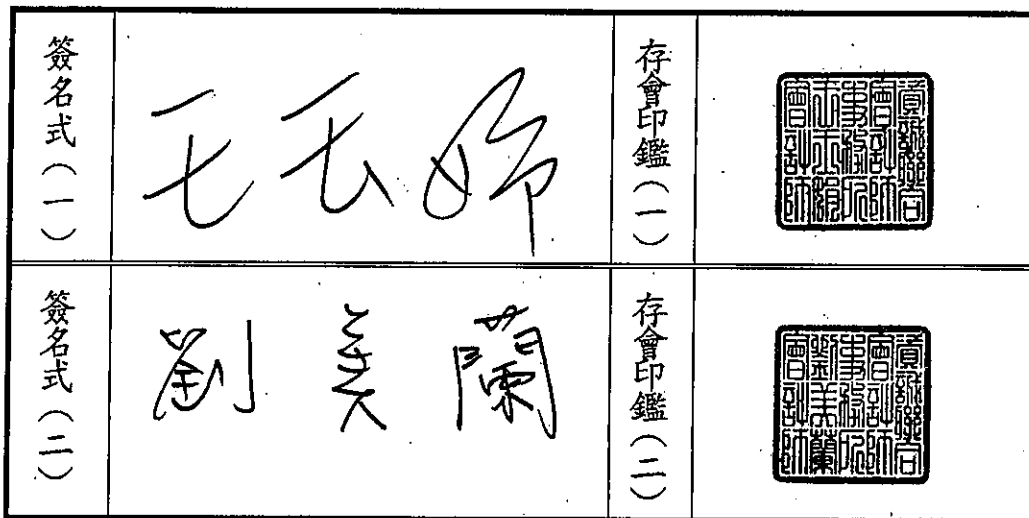 簽名式(一)
王玉娟
存會印鑑(一)
資誠聯合
會計師
事務所
王玉娟
會計師
簽名式(二)
劉美蘭
存會印鑑(二)
資誠聯合
會計師
事務所
劉美蘭
會計師